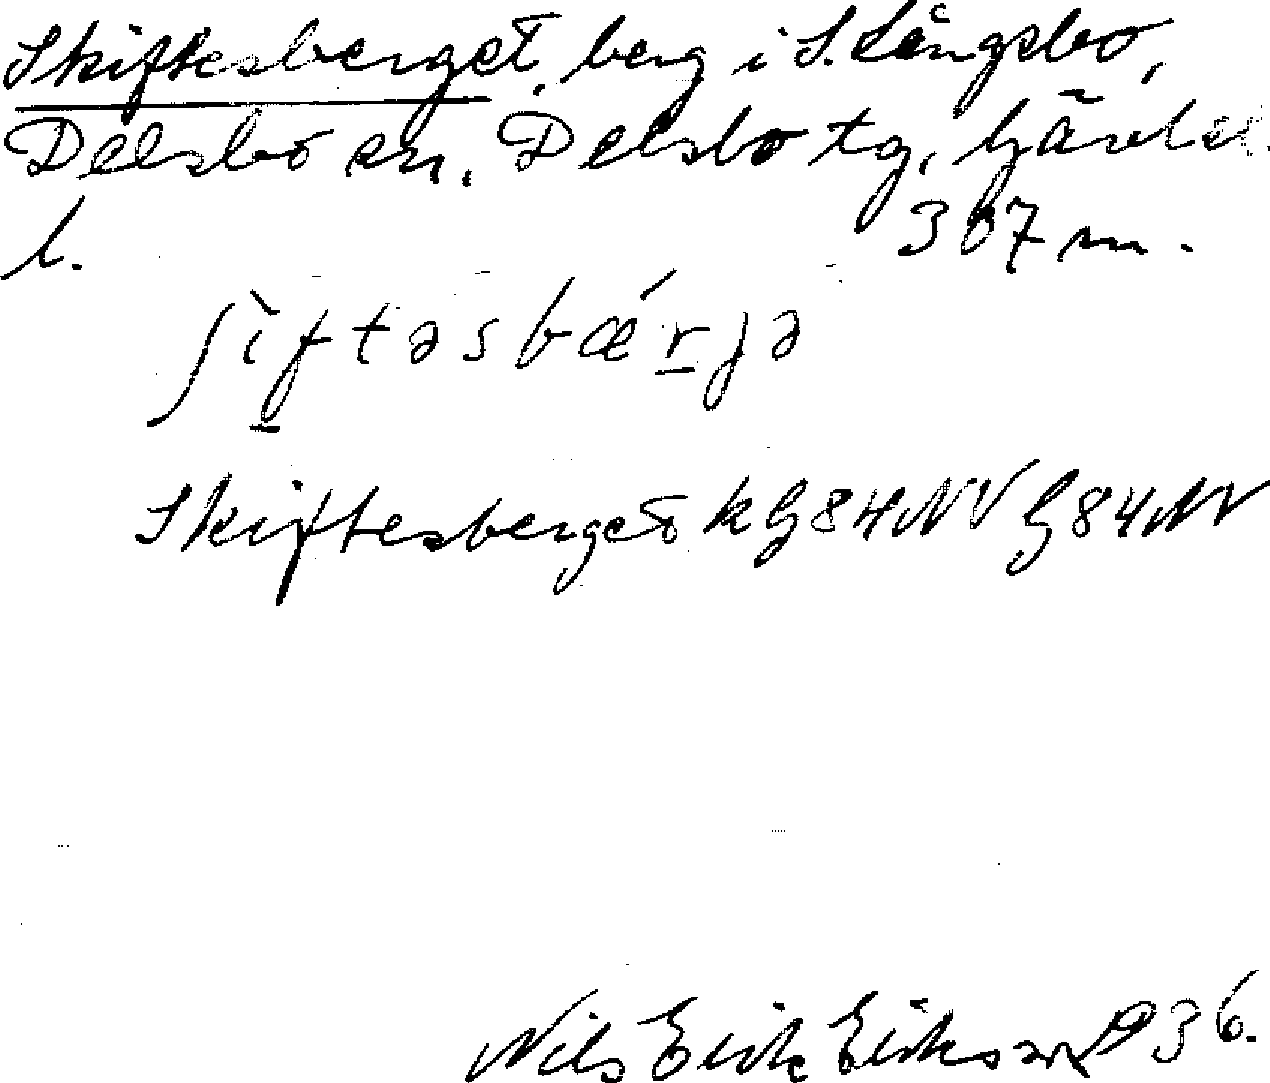 Skiftesberget, berg i S. Långsbo,
Delsbo sn, Delsbo tg, Gävleb.
l. 307 m.
ʃìftəsbǽrjə
Skiftesberget k G84NV G84NV
Nils Erik Eriksson 1936.